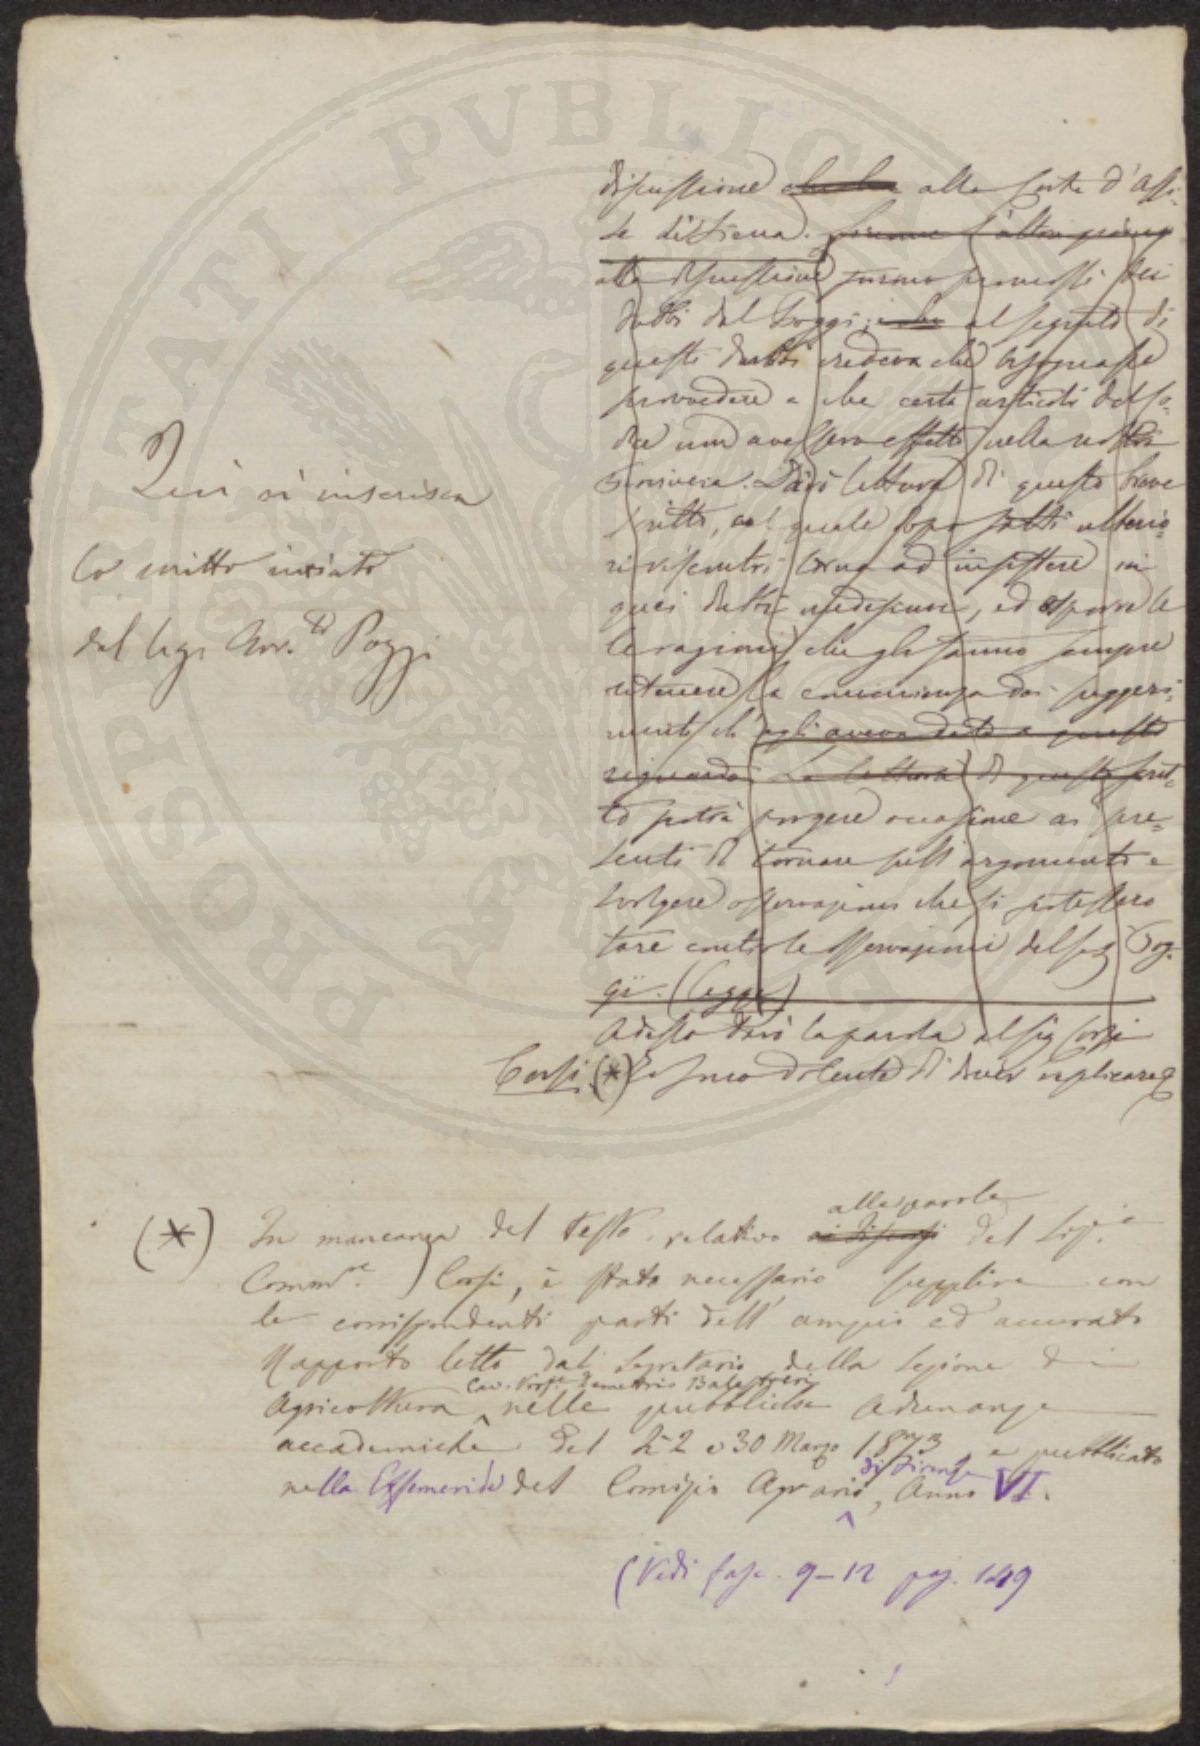 discussione alla Corte d'Assi-
se di Siena.
alla discussione furono promossi dei
dubbi dal Poggi; al seguito di
questi dubbi credeva che bisognasse
provvedere a che certi articoli del Co-
dice non avessero effetto nella nostra
Provincia. Darò lettura di questo breve
scritto, nel quale dopo fatti ulterio-
ri riscontri torna ad insistere in
quei dubbi medesimi, ed espone le
le ragioni che gli fanno sempre
ritenere la convenienza dei suggeri-
menti ch'egli aveva dato a questo
riguardo. La lettura di questo scrit-
to potrà porgere occasione ai pre-
senti di tornare sull'argomento e
svolgere osservazioni che si potessero
fare contro le osservazioni del sig. Pog-
gi. (Legge)
Adesso darò la parola al sig. Corsi
Corsi (*) Io sono dolente di dover replicare
Qui si inserisca
lo scritto inviato
dal Sigr. Avv.to Poggi
(*) In mancanza del testo relativo ai discorsi alle parole del Sigr.
Commre. Corsi, è stato necessario supplire con
le corrispondenti parti dell'ampio ed accurato
Rapporto letto dal Segretario della Sezione di
Agricoltura Cav. Profre. Demetrio Balestreri nelle pubbliche adunanze
accademiche del 22 e 30 Marzo 1873, e pubblicato
nella Effemeride del Comizio Agrario di Firenze, Anno VI.
(Vedi fasc. 9-12 pag. 149
PROSPERITATI PUBLICAE